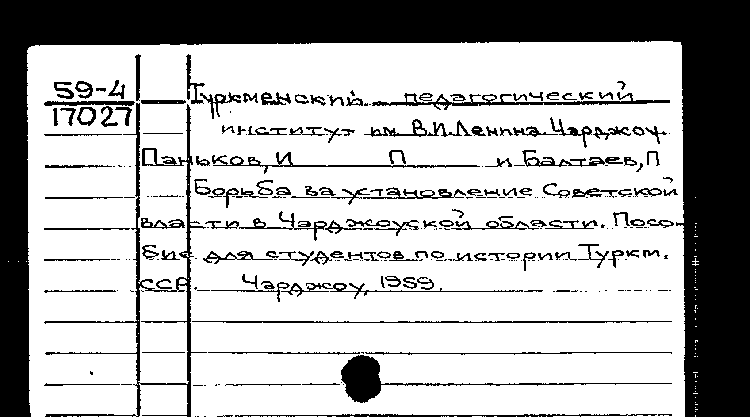 59-4 Туркменский педагогический
17027 институт им В.И.Ленина. Чарджоу.
Паньков, И П и Балтаев, П
Борьба за установление Советской
власти в Чарджоуской области. Посо-
бие для студентов по истории Туркм.
ССР. Чарджоу, 1959.